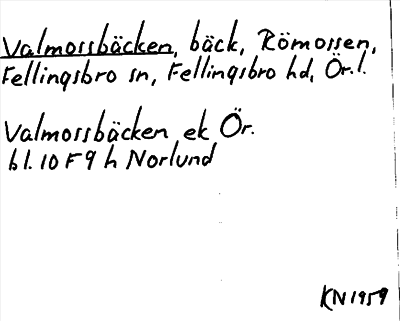 Valmossbäcken, bäck, Römossen,
Fellingsbro sn, Fellingsbro hd, Ör.l.
Valmossbäcken ek Ör.
bl. 10 F 9 h Norlund
KN 1959